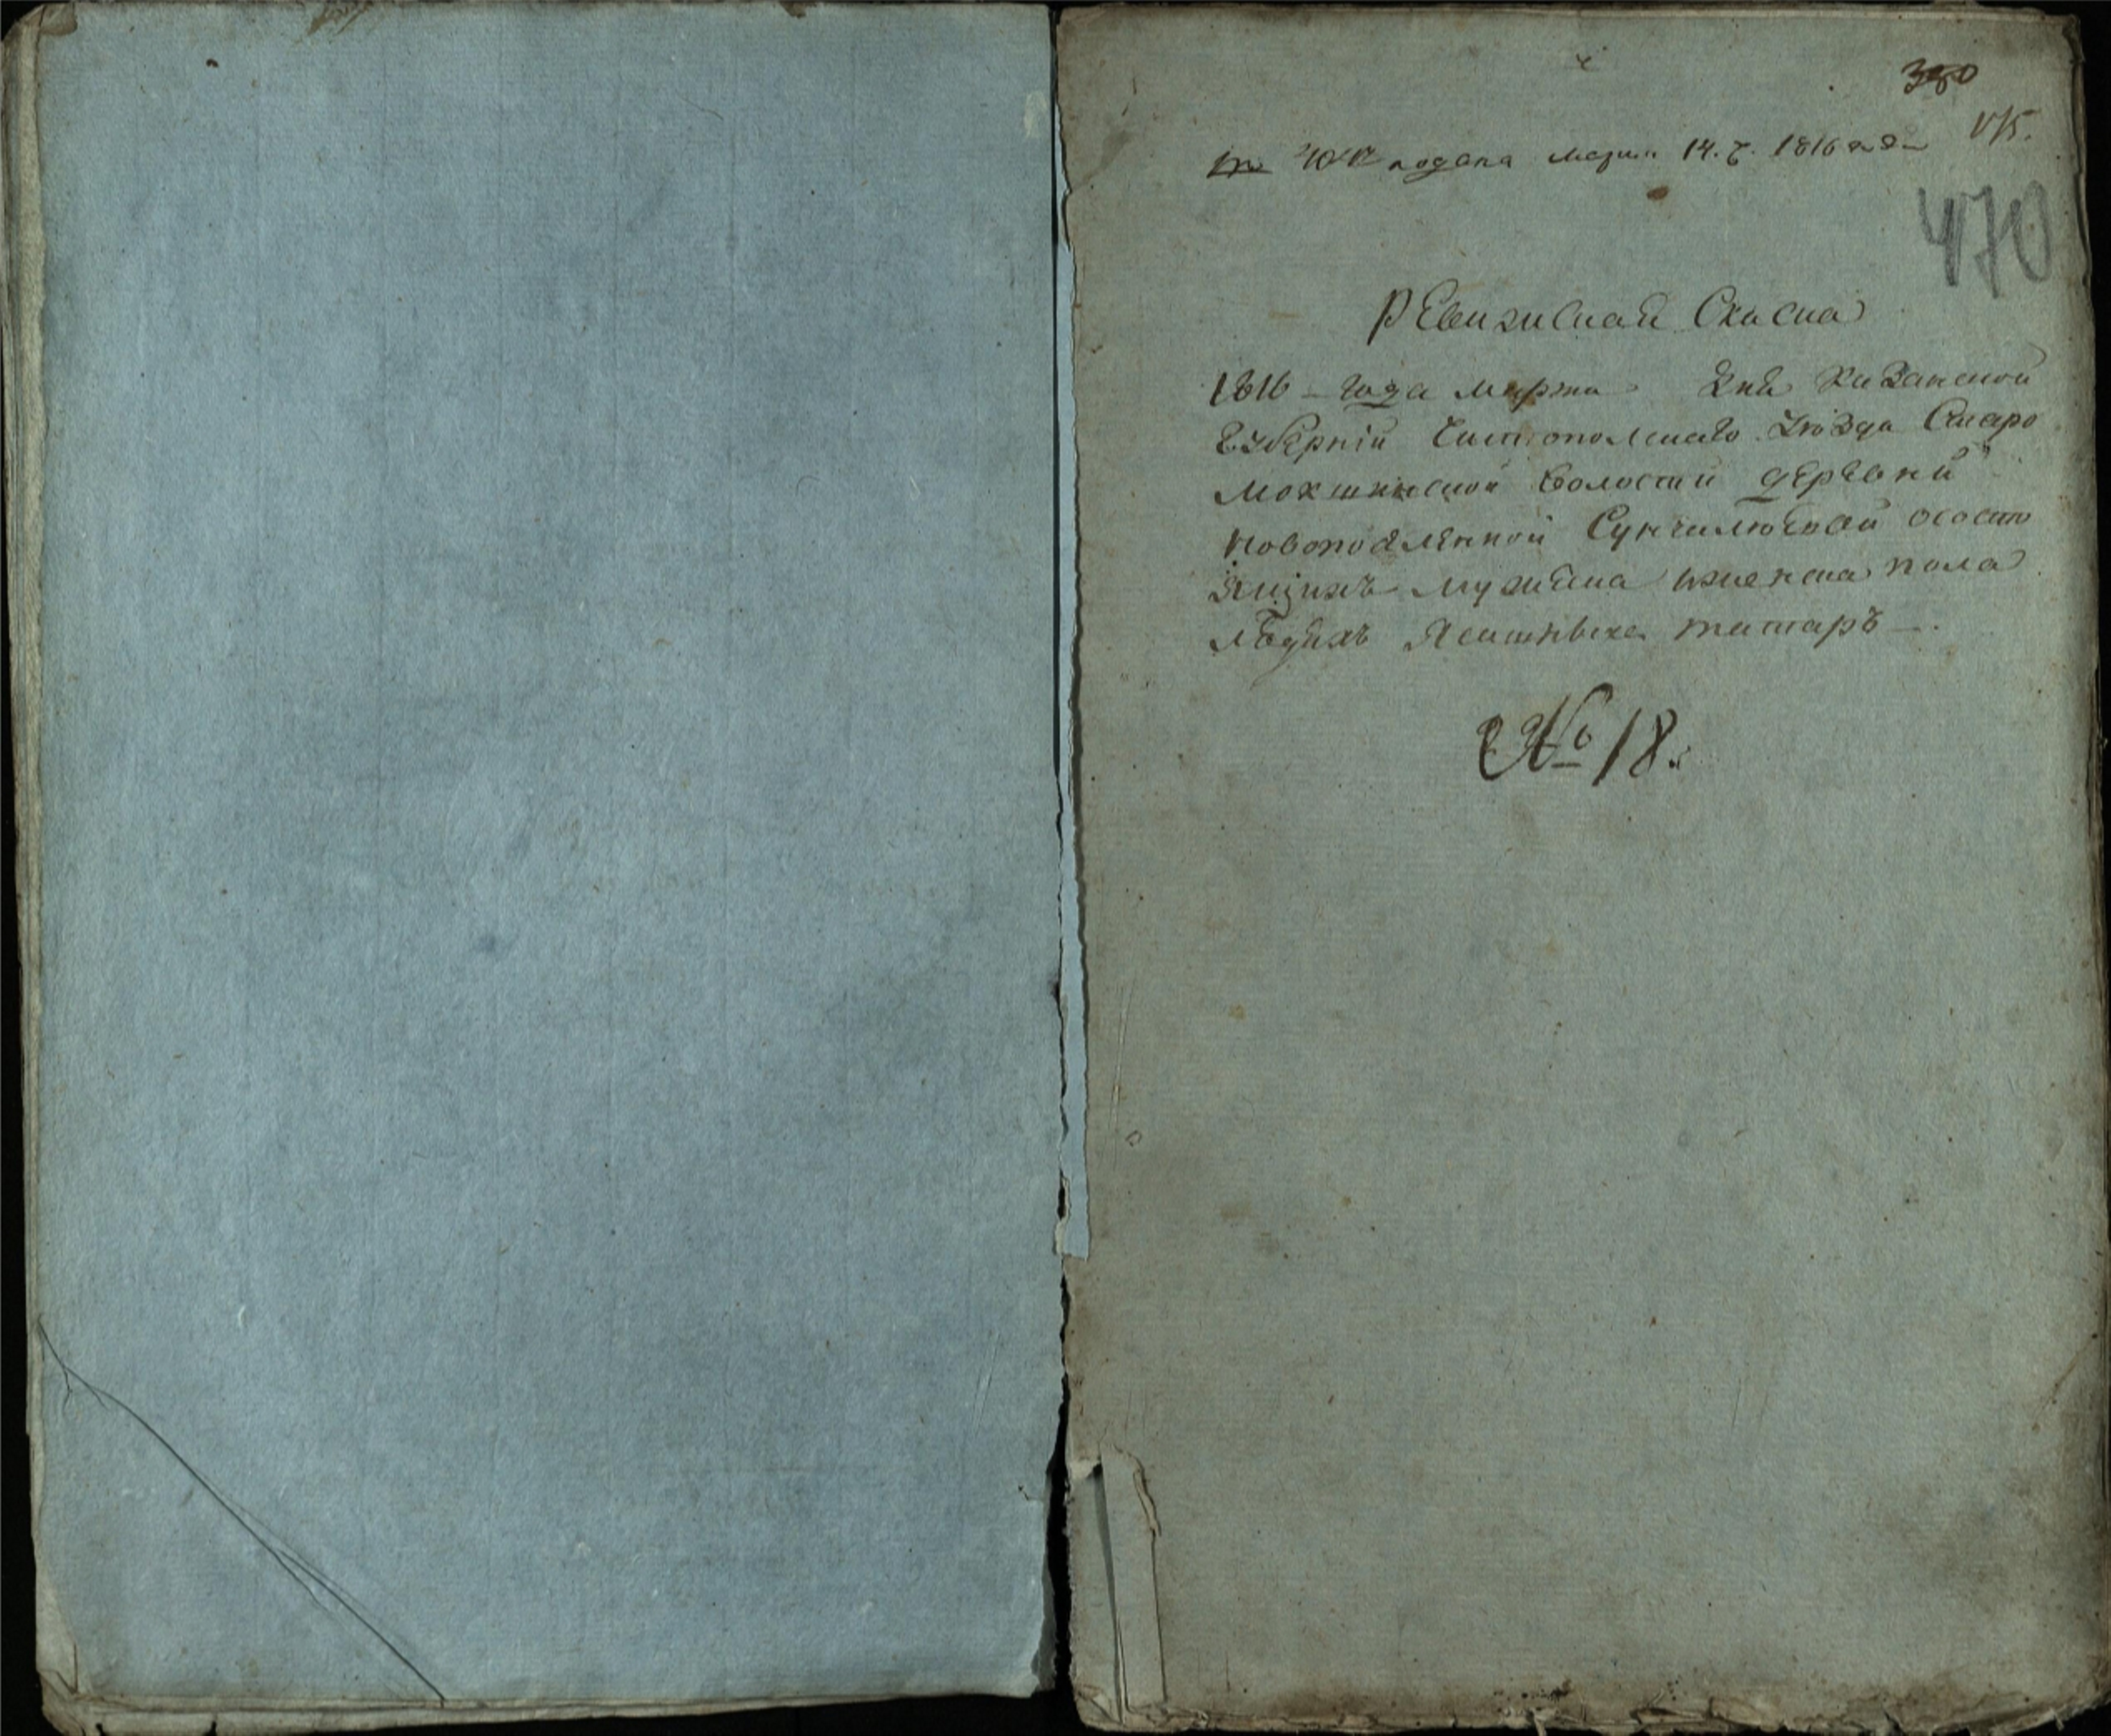 380
175.
подана марта 14. ч. 1816 года
470
РЕвизиская Скаска
1816 года марта дня Казанской
Губерніи Чистопольскаго Уѣзда Старо
мокшинской волости дЕрЕвни
новопосЕлЕнной Сунчилюевой ососто
ящихъ мужЕска и женска пола
лЮдяхъ Ясашныхъ татаръ
№ 18.